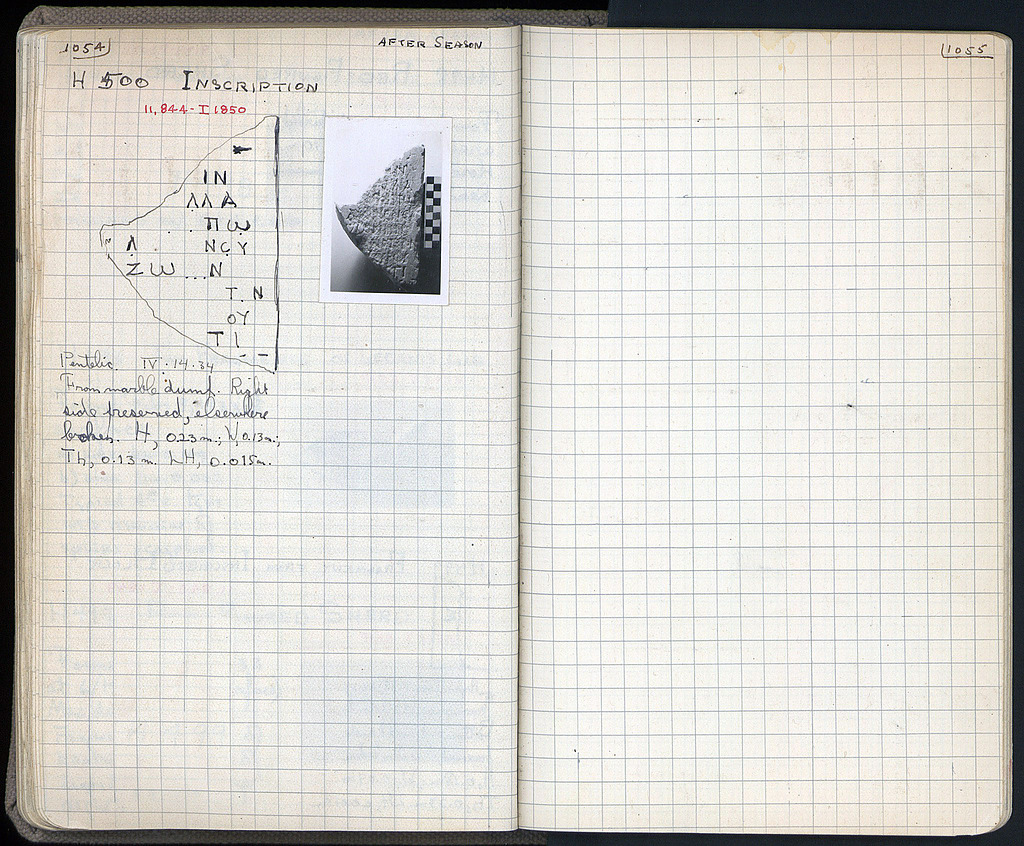 1054
AFTER SEASON
1055
H 500 INSCRIPTION
11,844-I 1850
ΙΝ
ΛΛΑ
. . ΠΩ
Λ . ΝϹΥ
ΖΩ ... Ν
Τ. Ν
ΟΥ
ΤΙ
Pentelic. IV.14.34
From marble dump. Right
side preserved, elsewhere
broken. H, 0.23m.; W, 0.13m.;
Th, 0.13 m. LH, 0.015m.